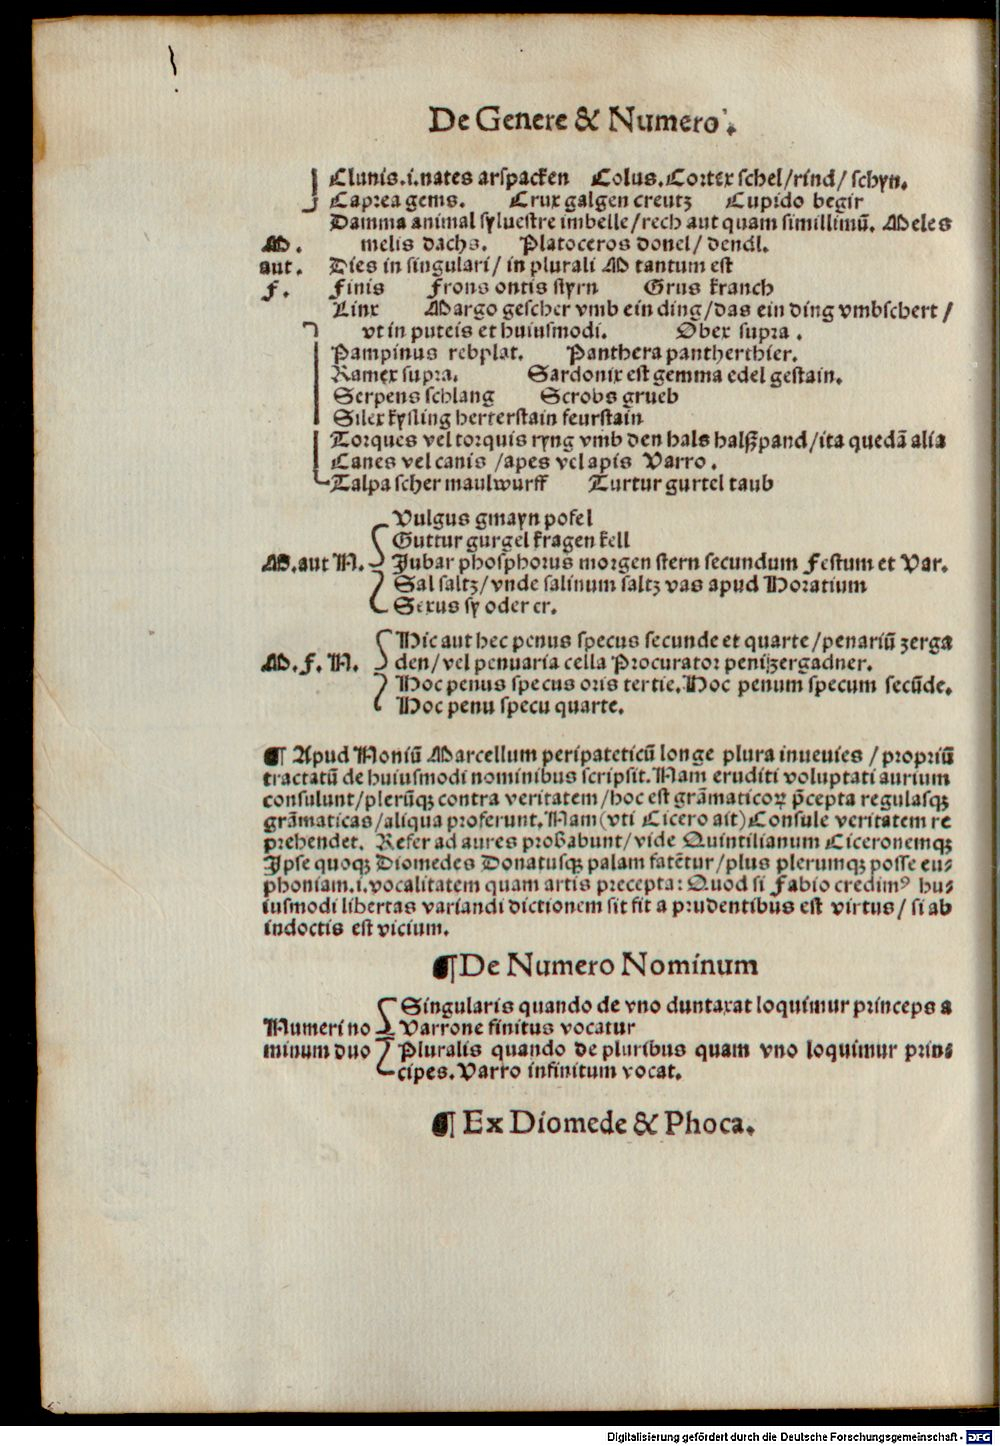 De Genere & Numero.
Clunis.i.nates arspacken Colus. Cortex schel/rind/ schyn.
Caprea gems. Crux galgen creutz Cupido begir
Damma animal syluestre imbelle/rech aut quam simillimū. Meles
M. melis dachs. Platoceros donel/ dendl.
aut. Dies in singulari/ in plurali M tantum est
F. Finis Frons ontis styrn Grus kranch
Linx Margo gescher vmb ein ding/das ein ding vmbschert /
vt in puteis et huiusmodi. Obex supra.
Pampinus rebplat. Panthera pantherthier.
Ramex supra. Sardonix est gemma edel gestain.
Serpens schlang Scrobs grueb
Silex kysling herterstain feurstain
Torques vel torquis ryng vmb den hals halßpand/ita quedā alia
Canes vel canis /apes vel apis Varro.
Talpa scher maulwurff Turtur gurtel taub
Vulgus gmayn pofel
Guttur gurgel kragen kell
M.aut N. Jubar phosphorus morgen stern secundum Festum et Var.
Sal saltz/vnde salinum saltz vas apud Horatium
Sexus sy oder er.
Hic aut hec penus specus secunde et quarte/penariū zerga
M.F.N. den/vel penuaria cella Procurator peni zergadner.
Hoc penus specus oris tertie. Hoc penum specum secūde.
Hoc penu specu quarte.
¶ Apud Noniū Marcellum peripateticū longe plura inuenies /propriū
tractatū de huiusmodi nominibus scripsit. Nam eruditi voluptati aurium
consulunt/plerūqꝫ contra veritatem/hoc est grāmaticoꝝ p̄cepta regulasqꝫ
grāmaticas/aliqua proferunt. Nam(vti Cicero ait)Consule veritatem re
prehendet. Refer ad aures probabunt/vide Quintilianum Ciceronemqꝫ
Ipse quoqꝫ Diomedes Donatusqꝫ palam fatētur/plus plerumqꝫ posse eu⸗
phoniam.i.vocalitatem quam artis precepta: Quod si Fabio credimꝰ hu⸗
iusmodi libertas variandi dictionem sit fit a prudentibus est virtus/ si ab
indoctis est vicium.
¶De Numero Nominum
Singularis quando de vno duntaxat loquimur princeps a
Numeri no Varrone finitus vocatur
minum duo Pluralis quando de pluribus quam vno loquimur prin⸗
cipes. Varro infinitum vocat.
¶ Ex Diomede & Phoca.
Digitalisierung gefördert durch die Deutsche Forschungsgemeinschaft - DFG